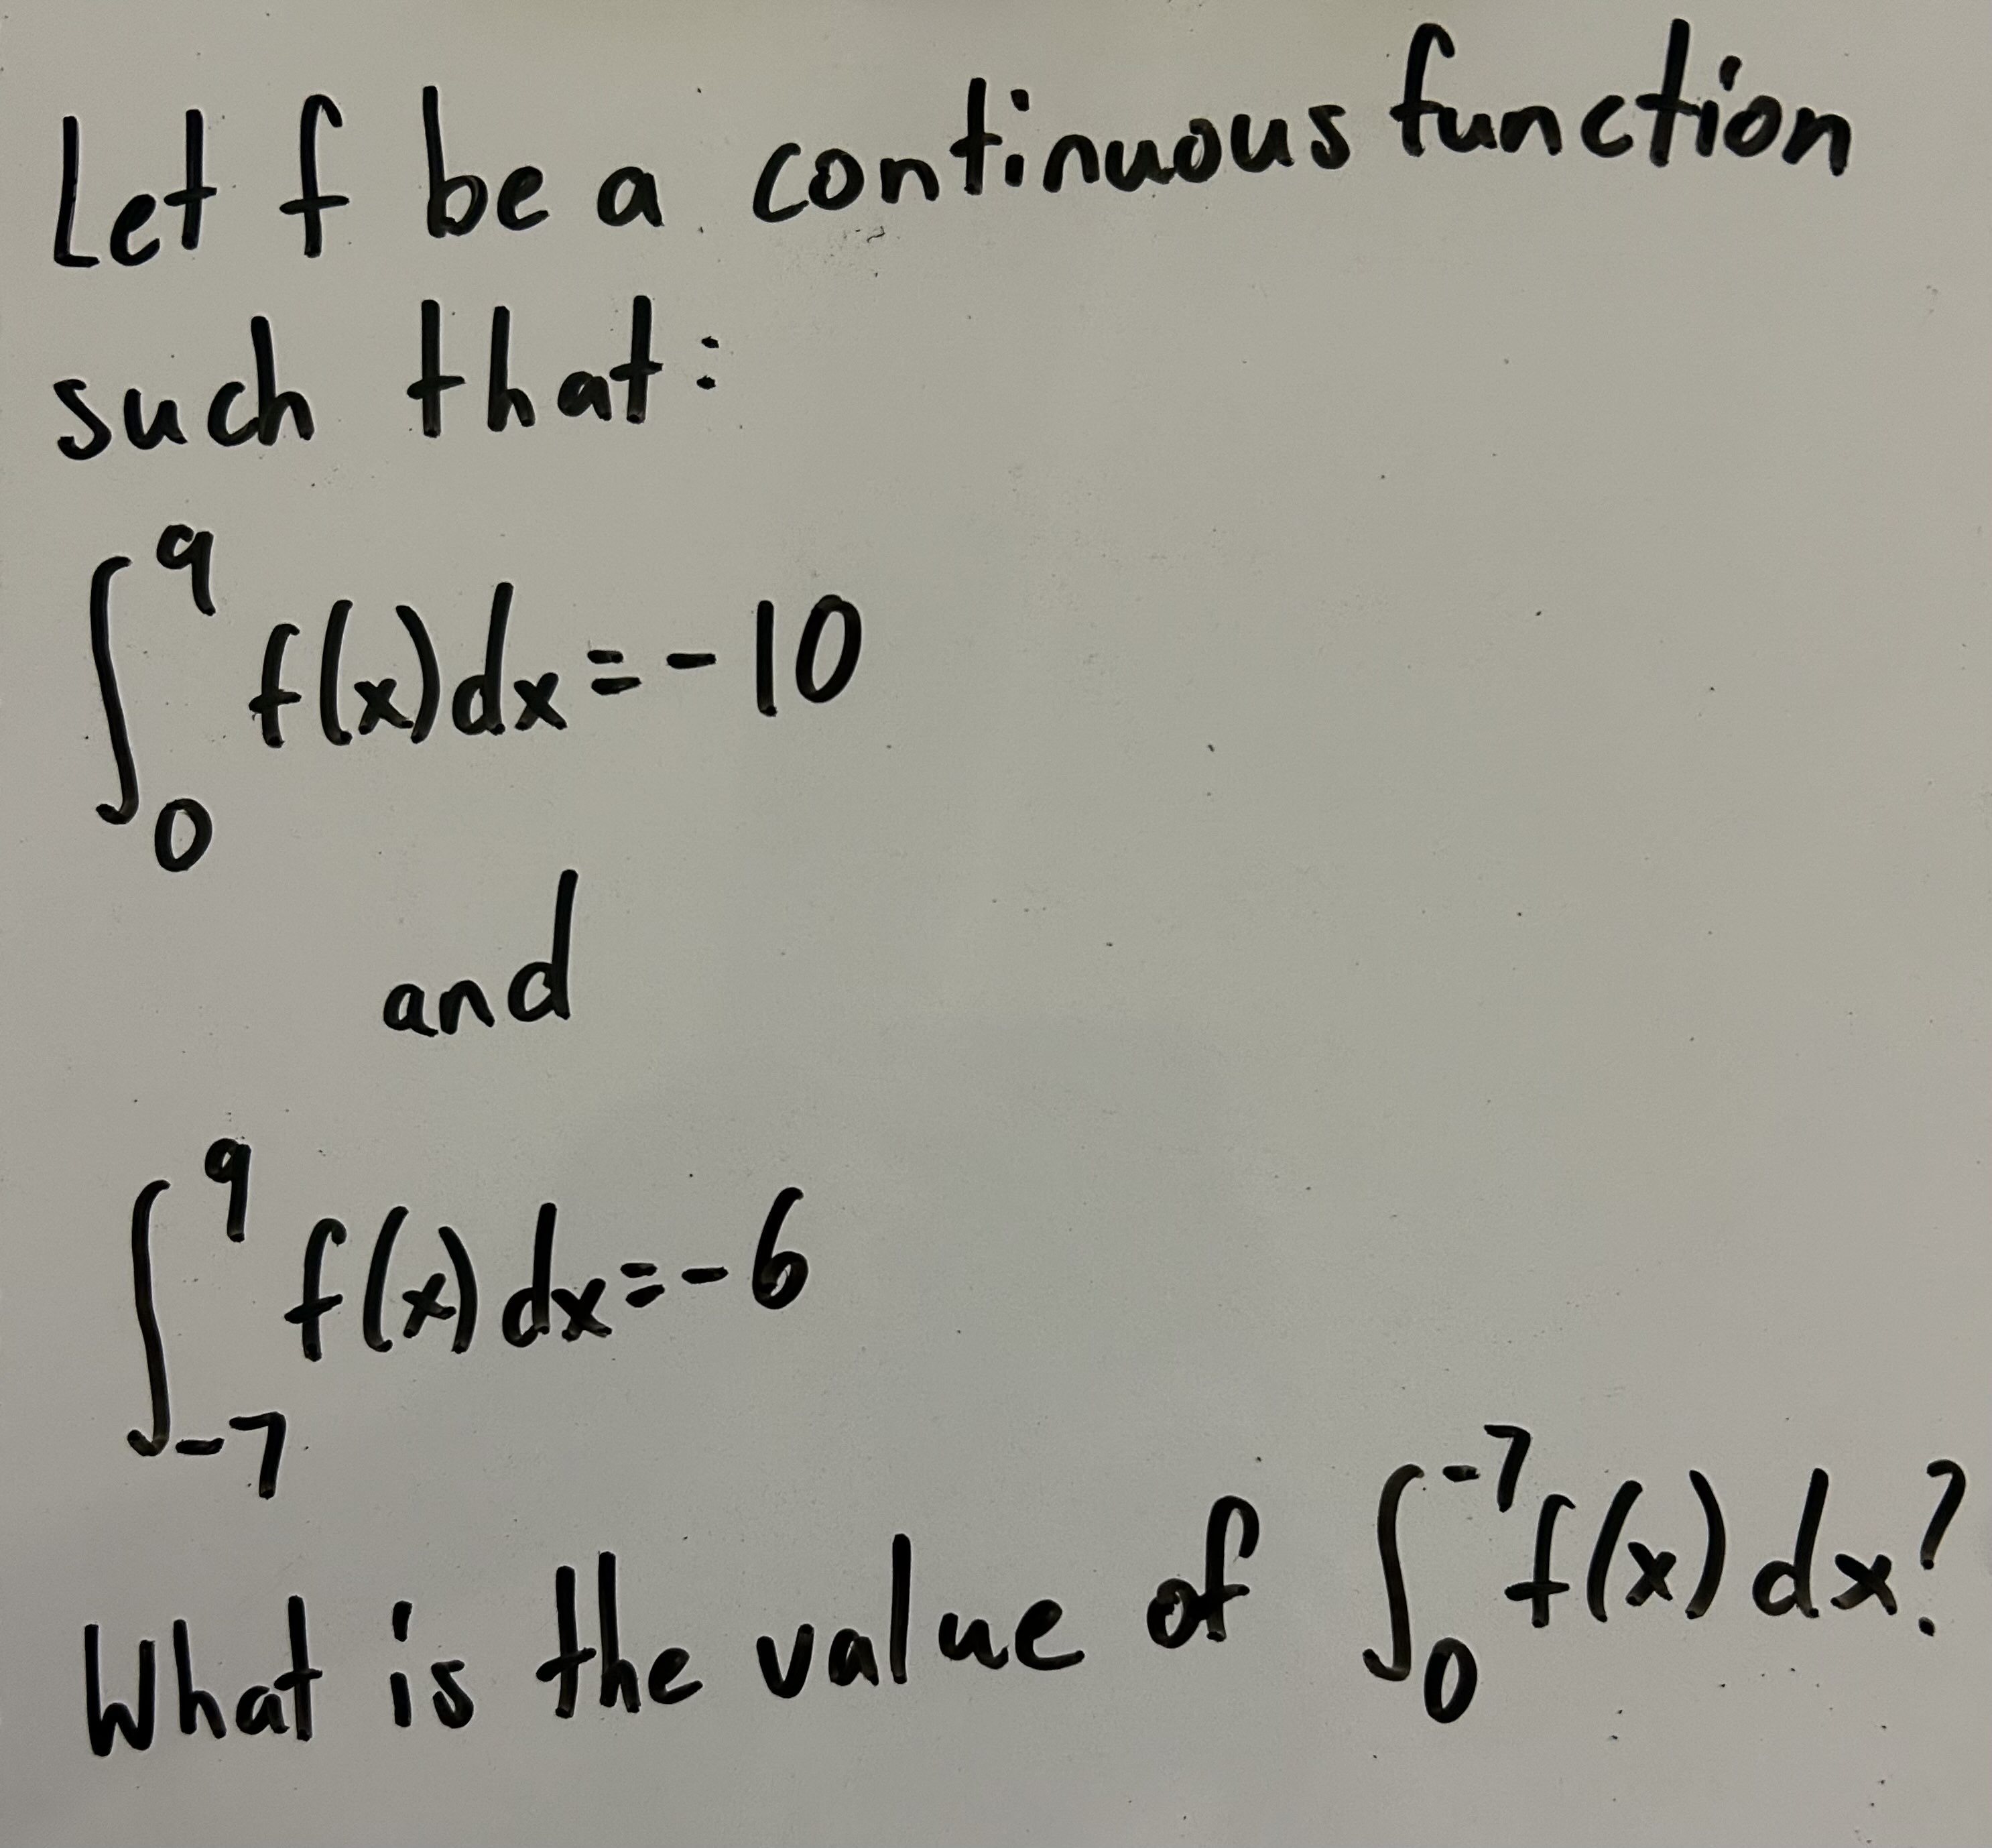 Let f be a continuous function
such that:
∫₀⁹ f(x)dx=-10
and
∫₋₇⁹ f(x)dx=-6
What is the value of ∫₀⁻⁷ f(x)dx?